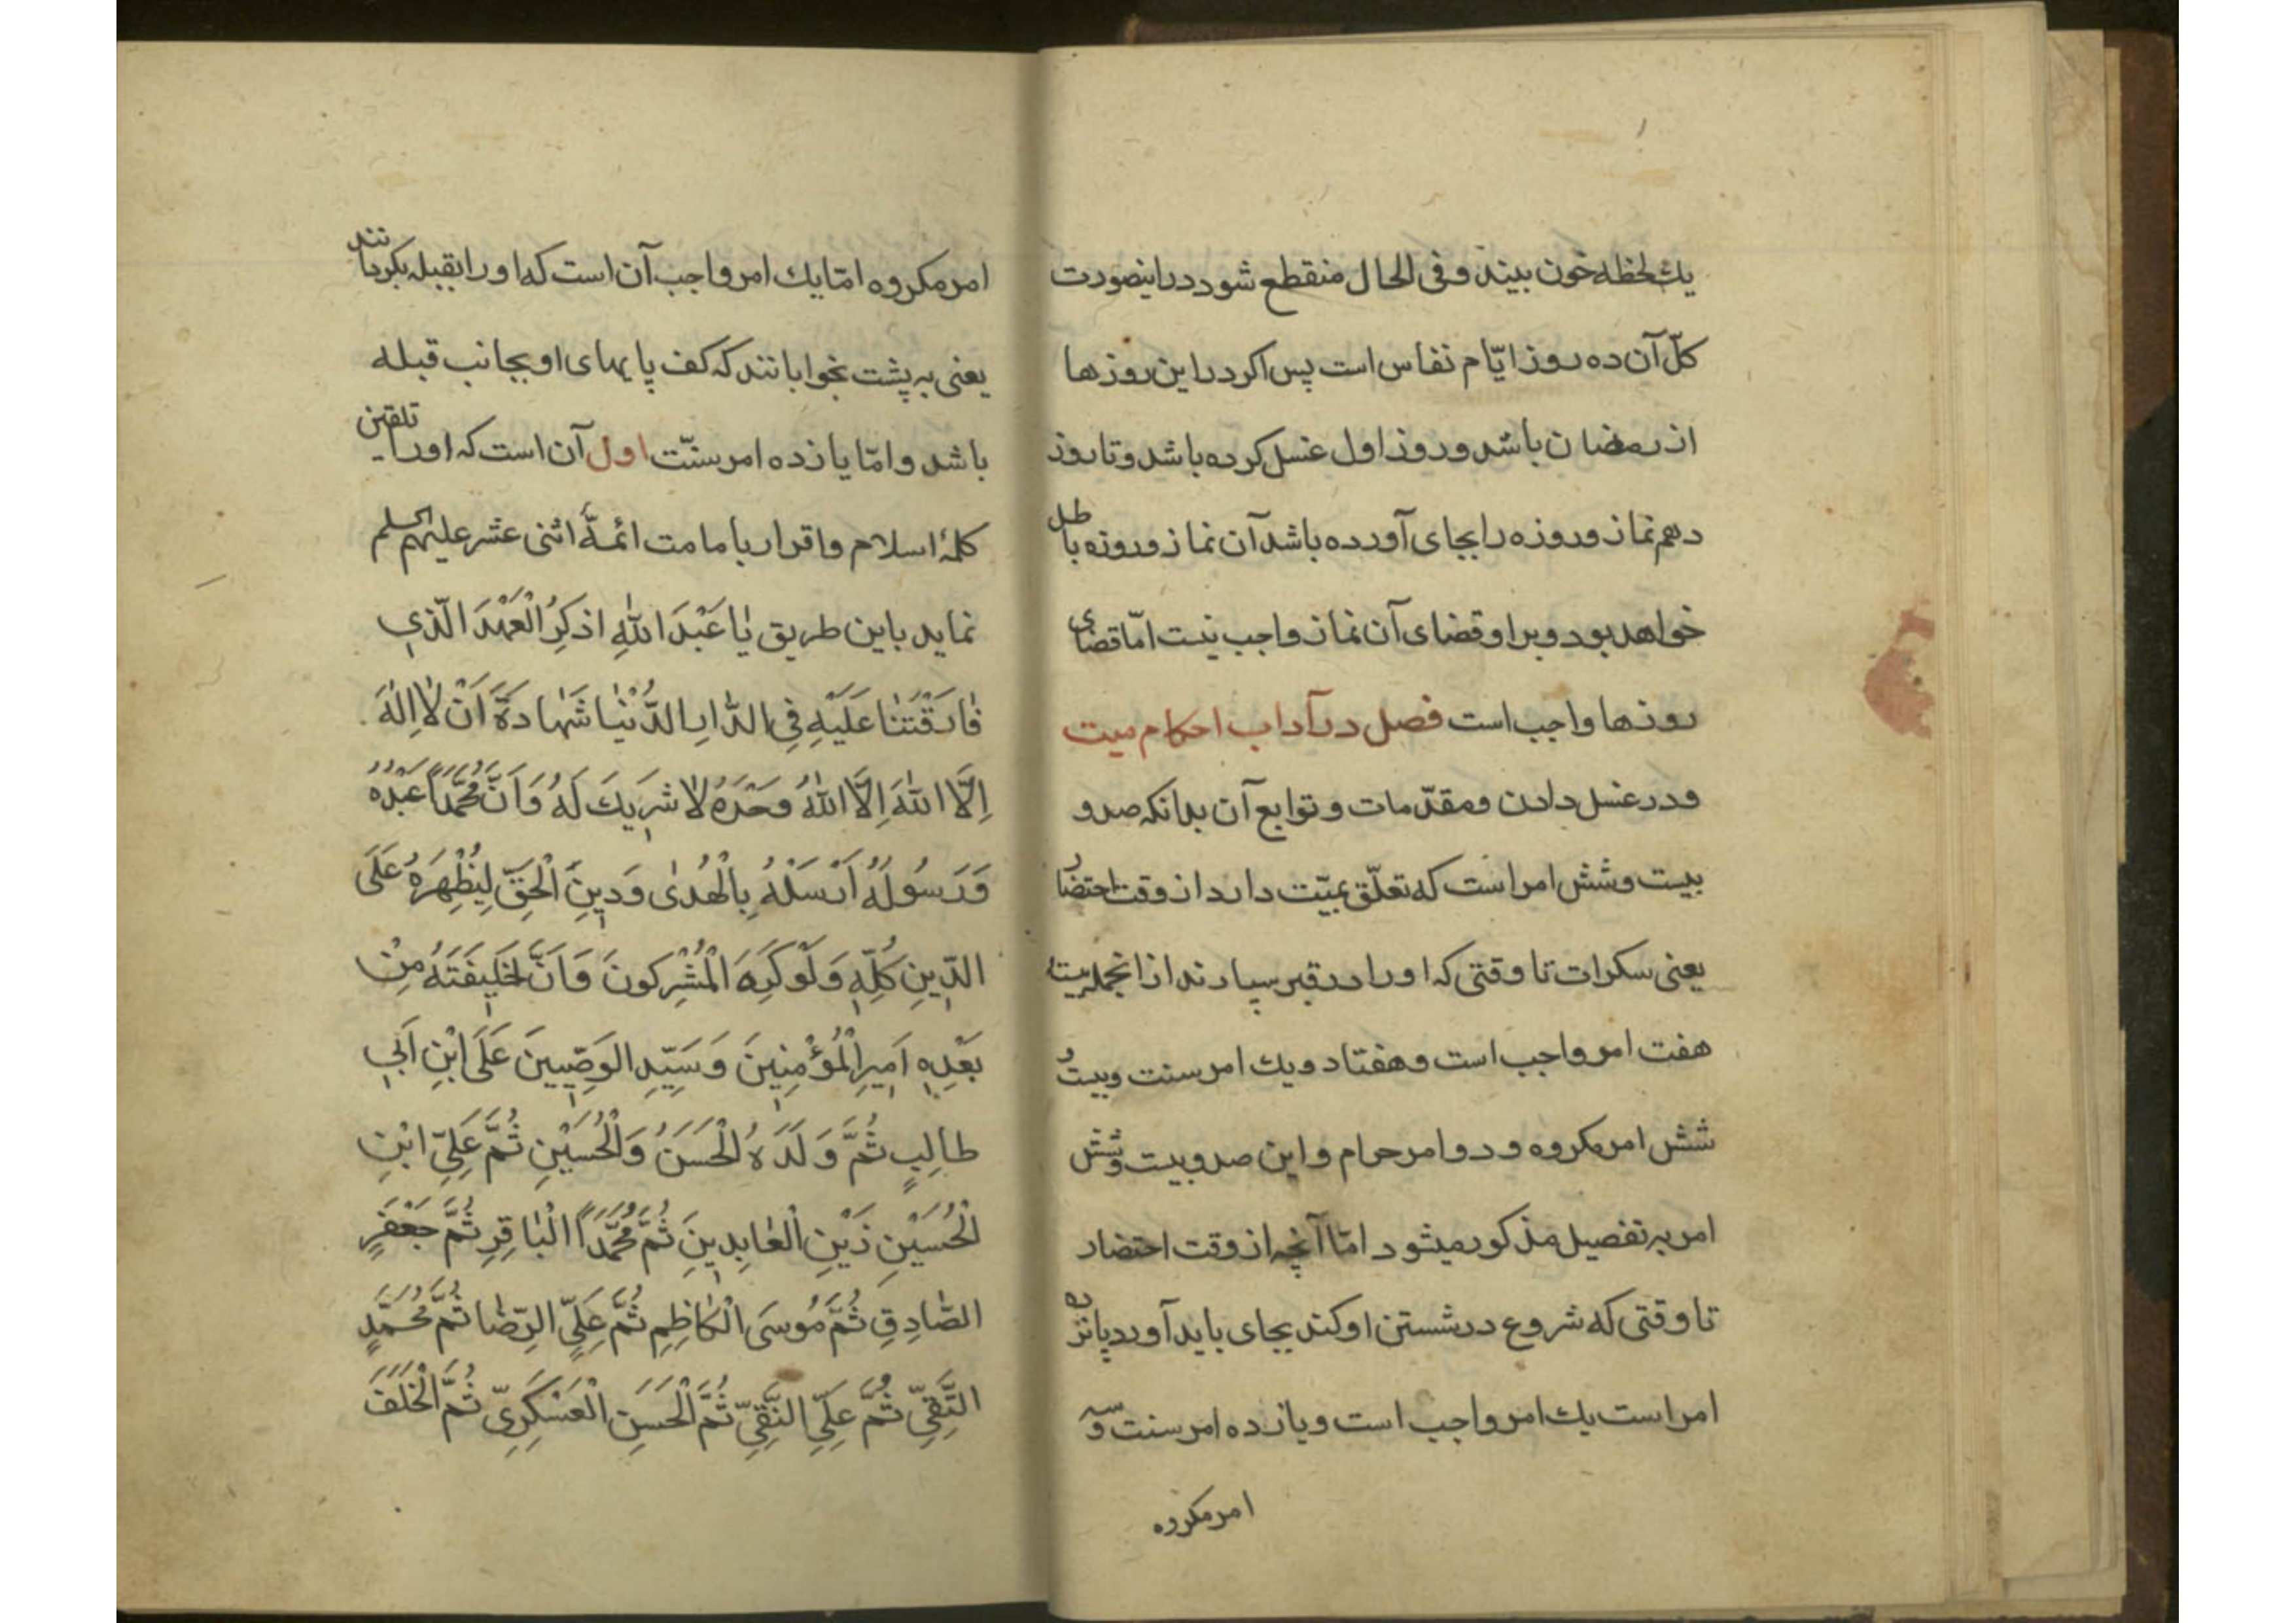 یك لحظه خون بیند و فی الحال منقطع شود در اینصورت
کلّ آن ده روز ایّام نفاس است پس اکر در این روزها
از رمضان باشد و روز اول غسل کرده باشد و تا روز
دهم نماز و روزه را بجای آورده باشد آن نماز و روزه باطل
خواهد بود و بر او قضای آن نماز واجب نیست امّا قضای
روزها واجب است فصل در آداب احکام میت
و در غسل دادن و مقدّمات و توابع آن بدانکه صد و
بیست و شش امر است که تعلّق بمیّت دارد از وقت احتضار
یعنی سکرات تا وقتی که او را در قبر سپارند از انجمله بیست
هفت امر واجب است و هفتاد و یك امر سنت و بیست و
شش امر مکروه و دو امر حرام و این صد و بیست و شش
امر به تفصیل مذکور میشود امّا آنچه از وقت احتضار
تا وقتی که شروع در شستن او کند بجای باید آورد پانزده
امر است یك امر واجب است و یازده امر سنت و سه
امر مکروه
امر مکروه امّا یك امر واجب آن است که او را بقبله بکردانند
یعنی به پشت بخوابانند که کف پایهای او بجانب قبله
باشد و امّا یازده امر سنّت اول آن است که او را تلقین
کلمهٔ اسلام و اقرار بامامت ائمّهٔ اثنی عشر علیهم السلم
نماید باین طریق یٰا عَبْدَ اللّٰهِ اذکِرُ الْعَهْدَ الَّذٖی
فٰارَقْتَنٰا عَلَیْهِ فِی الدّٰارِ الدُّنْیٰا شَهٰادَةَ اَنْ لٰا اِلٰهَ
اِلَّا اللّٰهَ اِلَّا اللّٰهُ وَحْدَهُ لٰا شَرٖیكَ لَهُ وَ اَنَّ مُحَمَّداً عَبْدُهُ
وَ رَسُولُهُ اَرْسَلَهُ بِالْهُدٰی وَ دٖینِ الْحَقِّ لِیُظْهِرَهُ عَلَی
الدّٖینِ کُلِّهٖ وَ لَوْ کَرِهَ الْمُشْرِکونَ وَ اَنَّ الخَلٖیفَتَهُ مِنْ
بَعْدِهٖ اَمٖیرِ الْمُؤْمِنٖینَ وَ سَیِّدِ الوَصِّیٖینَ عَلَی ابْنِ اَبٖی
طالِبٍ ثُمَّ وَلَدَهُ الْحَسَنُ وَ الْحُسَیْنِ ثُمَّ عَلِیِّ ابْنِ
الْحُسَیْنِ زَیْنِ الْعٰابِدٖینَ ثُمَّ مُحَمَّدَاً الْبٰاقِرِ ثُمَّ جَعْفَرٍ
الصّٰادِقِ ثُمَّ مُوسَی الْکٰاظِمِ ثُمَّ عَلِیٍّ الرِّضٰا ثُمَّ مُحَمَّدٍ
التَّقِیِّ ثُمَّ عَلِّیِ النَّقِیِّ ثُمَّ الْحَسَنِ الْعَسْکَرِیِّ ثُمَّ الْخَلَفَ